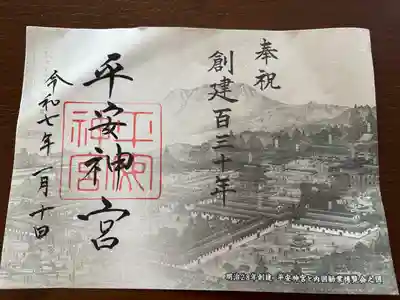 奉祝
創建百三十年
平安神宮
平安神宮
令和七年一月十日
明治28年創建 平安神宮と内国勧業博覧会之図